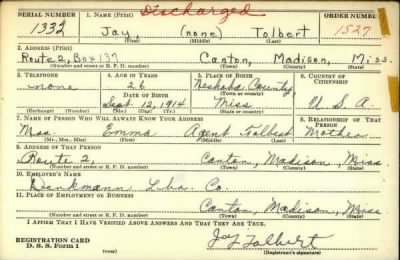 Discharged
SERIAL NUMBER 1. NAME (Print) ORDER NUMBER
1332 Jay, (none) Tolbert 1527
(First) (Middle) (Last)
2. ADDRESS (Print)
Route 2, Box 137 Canton, Madison, Miss.
(Number and street or R. F. D. number) (Town) (County) (State)
3. TELEPHONE 4. AGE IN YEARS 5. PLACE OF BIRTH 6. COUNTRY OF CITIZENSHIP
none 26 Neshoba County
DATE OF BIRTH (Town or county)
Sept. 12, 1914 Miss U. S. A.
(Exchange) (Number) (Mo.) (Day) (Yr.) (State or country)
7. NAME OF PERSON WHO WILL ALWAYS KNOW YOUR ADDRESS 8. RELATIONSHIP OF THAT PERSON
Mrs. Emma Agent Tolbert Mother
(Mr., Mrs., Miss) (First) (Middle) (Last)
9. ADDRESS OF THAT PERSON
Route 2, Canton, Madison, Miss.
(Number and street or R. F. D. number) (Town) (County) (State)
10. EMPLOYER'S NAME
Denkmann Lbr. Co.
11. PLACE OF EMPLOYMENT OR BUSINESS
Canton, Madison, Miss
(Number and street or R. F. D. number) (Town) (County) (State)
I AFFIRM THAT I HAVE VERIFIED ABOVE ANSWERS AND THAT THEY ARE TRUE.
REGISTRATION CARD Jay Tolbert
D. S. S. Form 1 (Registrant's signature)